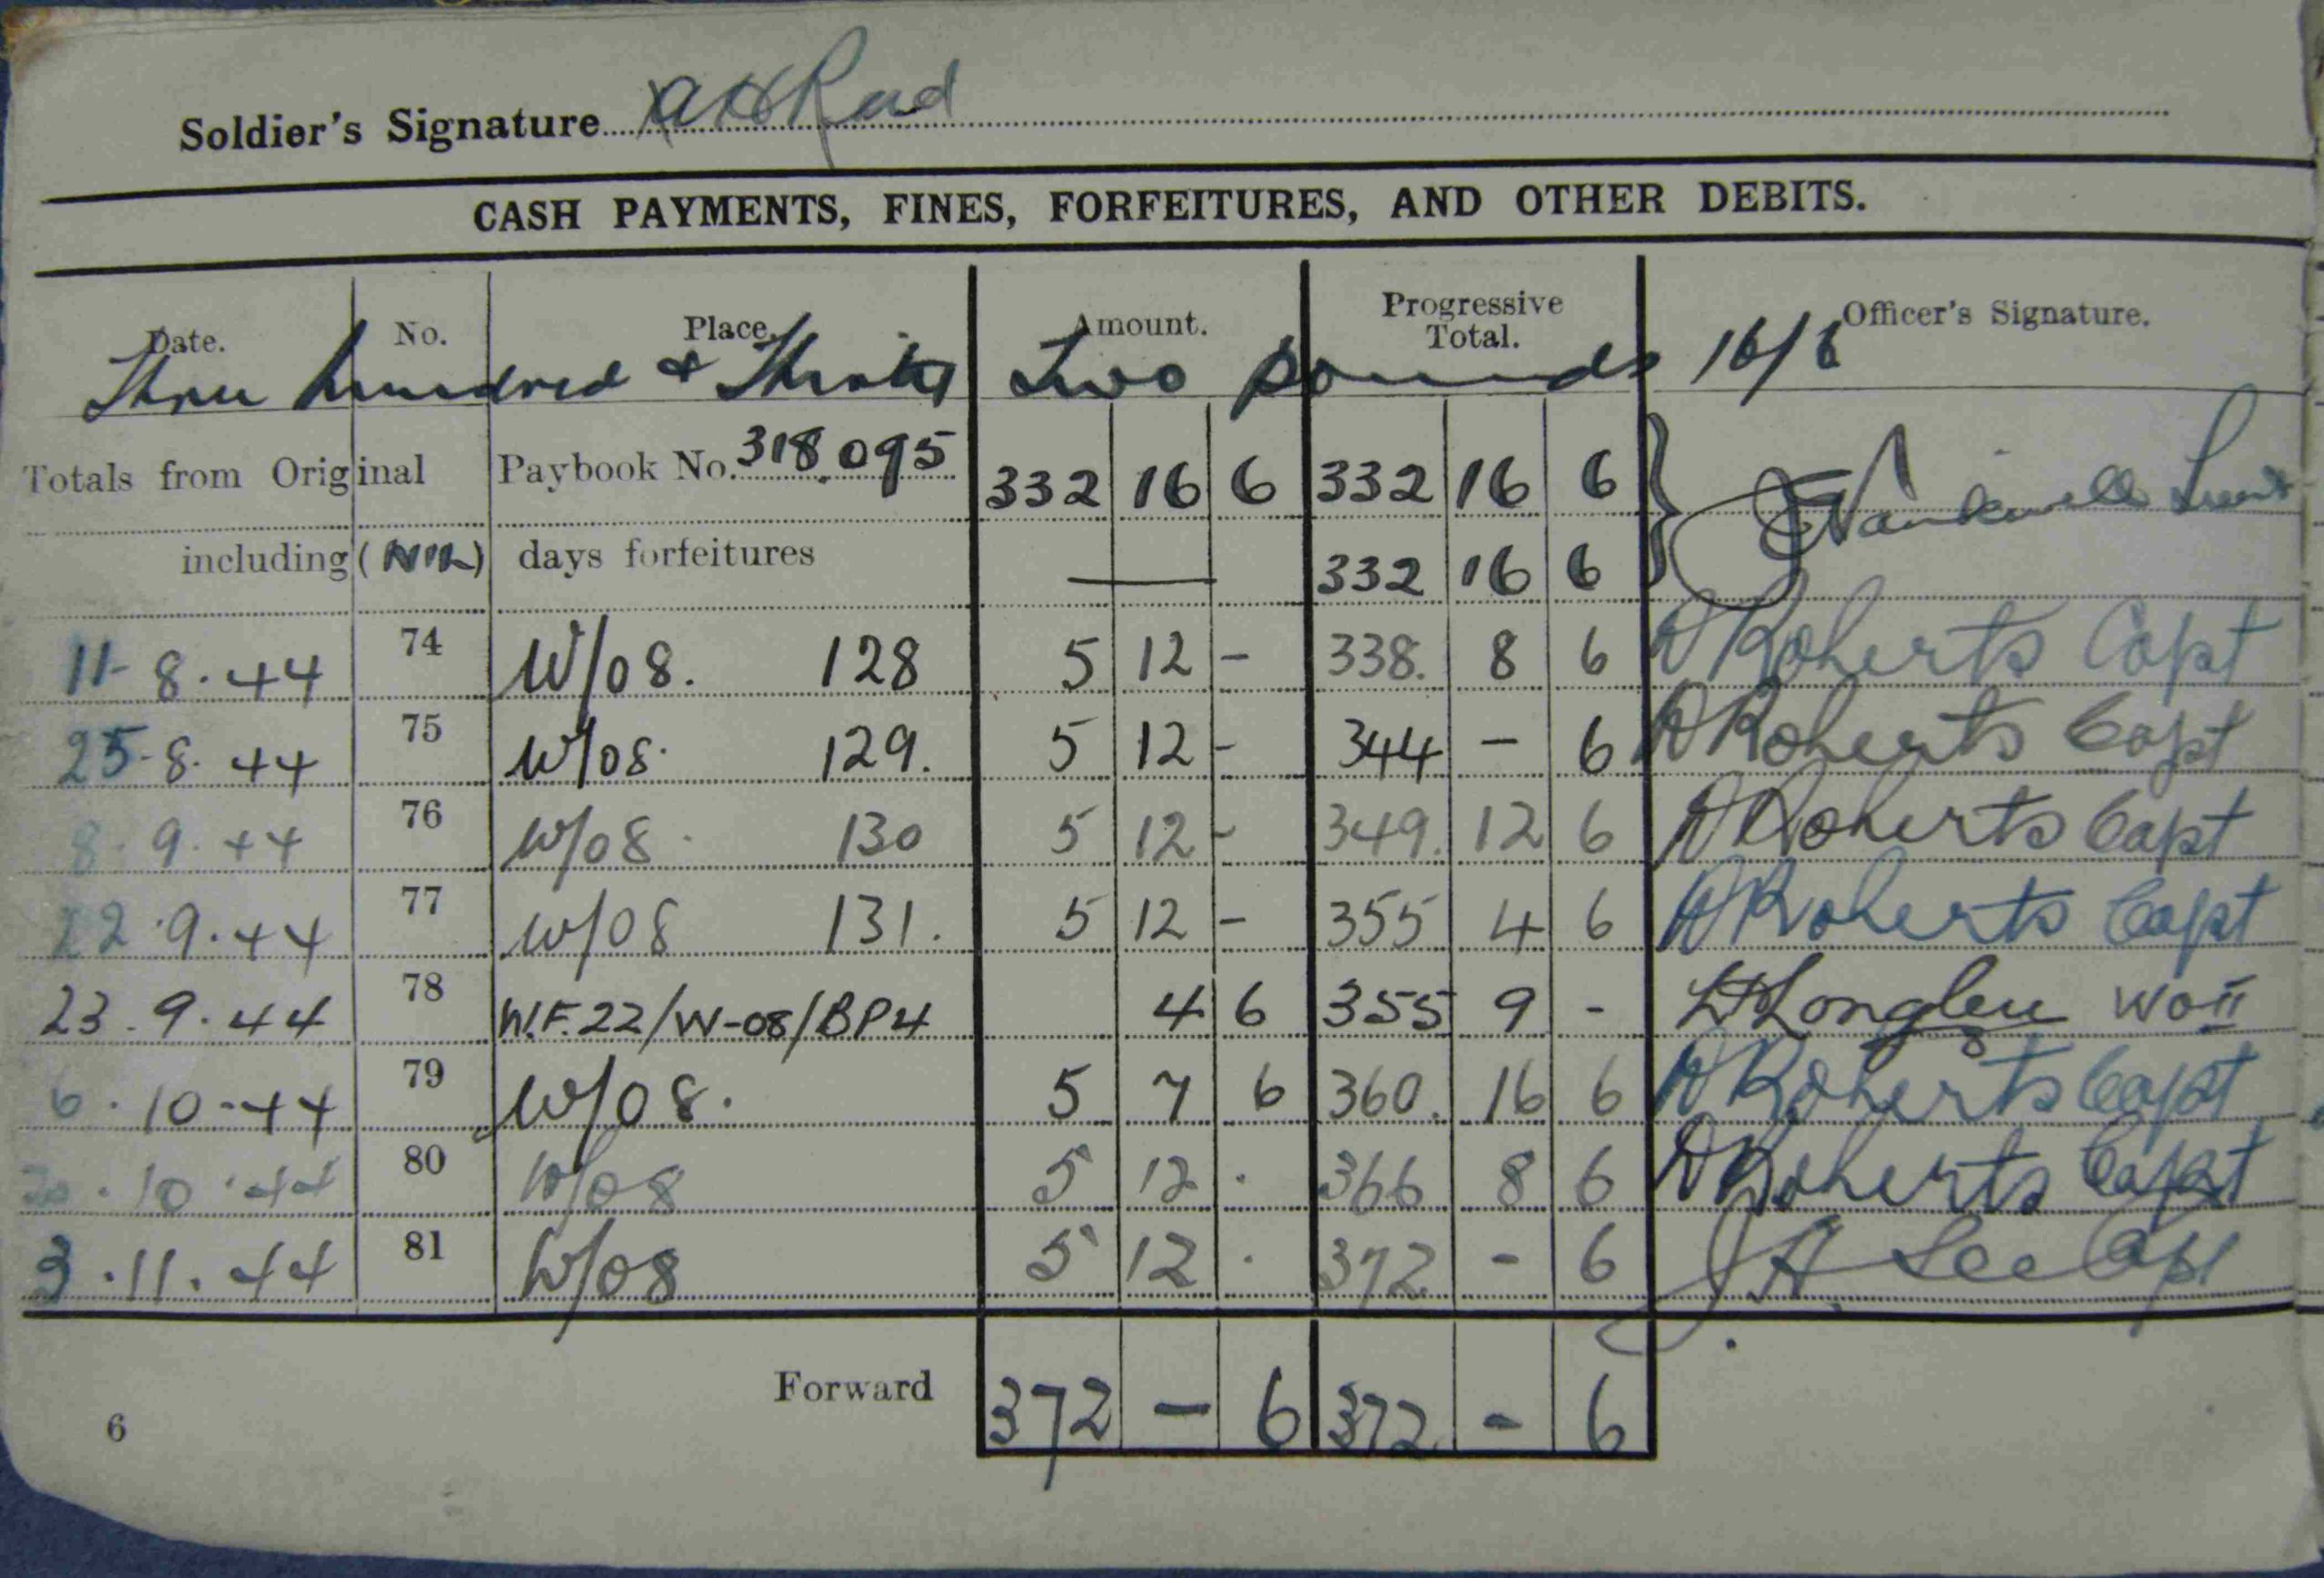 Soldier's Signature
CASH PAYMENTS, FINES, FORFEITURES, AND OTHER DEBITS.
Date. No. Place. Amount. Progressive Total. Officer's Signature.
Three hundred & Thirty Two pounds 16/6
Totals from Original Paybook No. 318095 332 16 6 332 16 6
including (NIL) days forfeitures — 332 16 6
11-8.44 74 W/08. 128 5 12 - 338. 8 6 Roberts Capt
25-8.44 75 W/08. 129. 5 12 - 344 - 6 Roberts Capt
8.9.44 76 W/08. 130 5 12 - 349. 12 6 Roberts Capt
22.9.44 77 W/08 131. 5 12 - 355 4 6 Roberts Capt
23.9.44 78 W.F.22/W-08/BP4 4 6 355 9 - Longley WOII
6.10-44 79 W/08. 5 7 6 360. 16 6 Roberts Capt
20.10.44 80 W/08 5 12 . 366 8 6 Roberts Capt
3.11.44 81 W/08 5 12 . 372 - 6 Lee Capt
Forward 372 - 6 372 - 6
6